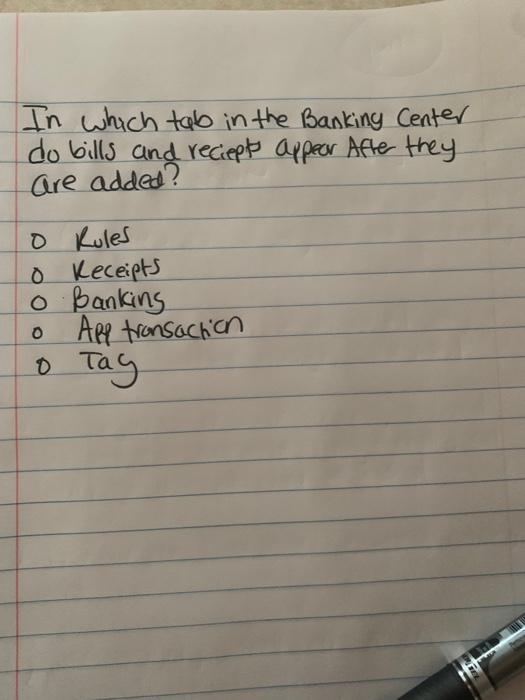 In which tab in the Banking Center
do bills and reciepts appear After they
are added?
o Rules
o Receipts
o Banking
o App transaction
o Tag